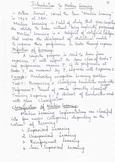 Introduction to Machine Learning
Arthur Samuel, coined the term Machine Learning in
Machine Learning is field of study that gives computers
the ability to learn without being explicitly programmed
Machine Learning is a
that enables the development of
to improve their performance in tasks through experience
Definition of learning
A computer program is said to learn from
experience E with respect to some class of tasks T
and performance measure P, if its performance at
tasks T, as measured by P, improves with experience E
Examples: Handwriting recognition learning problem
Task T: Recognizing and classifying handwritten words
Performance P: Percent of words correctly classified
Training experience E: A dataset of handwritten words
with given
Classification of Machine Learning
Machine Learning implementations are classified
into four major categories, depending on the nature
of
1. Supervised Learning
2. Unsupervised Learning
3. Reinforcement Learning
4. Semi-Supervised Learning